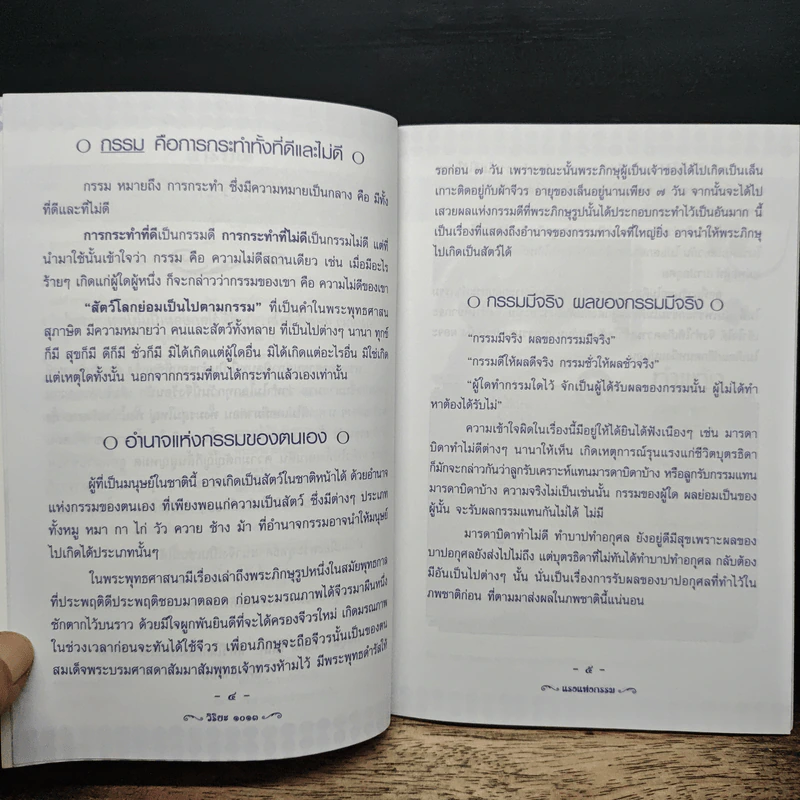 กรรม คือการกระทำทั้งที่ดีและไม่ดี
กรรม หมายถึง การกระทำ ซึ่งมีความหมายเป็นกลาง คือ มีทั้ง
ที่ดีและที่ไม่ดี
การกระทำที่ดีเป็นกรรมดี การกระทำที่ไม่ดีเป็นกรรมไม่ดี แต่ที่
นำมาใช้นั้นเข้าใจว่า กรรม คือ ความไม่ดีสถานเดียว เช่น เมื่อมีอะไร
ร้ายๆ เกิดแก่ผู้ใดผู้หนึ่ง ก็จะกล่าวว่ากรรมของเขา คือ ความไม่ดีของเขา
“สัตว์โลกย่อมเป็นไปตามกรรม” ที่เป็นคำในพระพุทธศาสน
สุภาษิต มีความหมายว่า คนและสัตว์ทั้งหลาย ที่เป็นไปต่างๆ นานา ทุกข์
ก็มี สุขก็มี ดีก็มี ชั่วก็มี มิได้เกิดแต่ผู้ใดอื่น มิได้เกิดแต่อะไรอื่น มิใช่เกิด
แต่เหตุใดทั้งนั้น นอกจากกรรมที่ตนได้กระทำแล้วเองเท่านั้น
อำนาจแห่งกรรมของตนเอง
ผู้ที่เป็นมนุษย์ในชาตินี้ อาจเกิดเป็นสัตว์ในชาติหน้าได้ ด้วยอำนาจ
แห่งกรรมของตนเอง ที่เพียงพอแก่ความเป็นสัตว์ ซึ่งมีต่างๆ ประเภท
ทั้งหมู หมา กา ไก่ วัว ควาย ช้าง ม้า ที่อำนาจกรรมอาจนำให้มนุษย์
ไปเกิดได้ประเภทนั้นๆ
ในพระพุทธศาสนามีเรื่องเล่าถึงพระภิกษุรูปหนึ่งในสมัยพุทธกาล
ที่ประพฤติดีประพฤติชอบมาตลอด ก่อนจะมรณภาพได้จีวรมาผืนหนึ่ง
ซักตากไว้บนราว ด้วยมีใจผูกพันยินดีที่จะได้ครองจีวรใหม่ เกิดมรณภาพ
ในช่วงเวลาก่อนจะทันได้ใช้จีวร เพื่อนภิกษุจะถือจีวรนั้นเป็นของตน
สมเด็จพระบรมศาสดาสัมมาสัมพุทธเจ้าทรงห้ามไว้ มีพระพุทธดำรัสให้
- ๔ -
วิริยะ ๑๐๑๓
รอก่อน ๗ วัน เพราะขณะนั้นพระภิกษุผู้เป็นเจ้าของได้ไปเกิดเป็นเล็น
เกาะติดอยู่กับผ้าจีวร อายุของเล็นอยู่นานเพียง ๗ วัน จากนั้นจะได้ไป
เสวยผลแห่งกรรมดีที่พระภิกษุรูปนั้นได้ประกอบกระทำไว้เป็นอันมาก นี้
เป็นเรื่องที่แสดงถึงอำนาจของกรรมทางใจที่ใหญ่ยิ่ง อาจนำให้พระภิกษุ
ไปเกิดเป็นสัตว์ได้
กรรมมีจริง ผลของกรรมมีจริง
“กรรมมีจริง ผลของกรรมมีจริง”
“กรรมดีให้ผลดีจริง กรรมชั่วให้ผลชั่วจริง”
“ผู้ใดทำกรรมใดไว้ จักเป็นผู้ได้รับผลของกรรมนั้น ผู้ไม่ได้ทำ
หาต้องได้รับไม่”
ความเข้าใจผิดในเรื่องนี้มีอยู่ให้ได้ยินได้ฟังเนืองๆ เช่น มารดา
บิดาทำไม่ดีต่างๆ นานาให้เห็น เกิดเหตุการณ์รุนแรงแก่ชีวิตบุตรธิดา
ก็มักจะกล่าวกันว่าลูกรับเคราะห์แทนมารดาบิดาบ้าง หรือลูกรับกรรมแทน
มารดาบิดาบ้าง ความจริงไม่เป็นเช่นนั้น กรรมของผู้ใด ผลย่อมเป็นของ
ผู้นั้น จะรับผลกรรมแทนกันไม่ได้ ไม่มี
มารดาบิดาทำไม่ดี ทำบาปทำอกุศล ยังอยู่ดีมีสุขเพราะผลของ
บาปอกุศลยังส่งไปไม่ถึง แต่บุตรธิดาที่ไม่ทันได้ทำบาปทำอกุศล กลับต้อง
มีอันเป็นไปต่างๆ นั้น นั่นเป็นเรื่องการรับผลของบาปอกุศลที่ทำไว้ใน
ภพชาติก่อน ที่ตามมาส่งผลในภพชาตินี้แน่นอน
- ๕ -
แรงแห่งกรรม